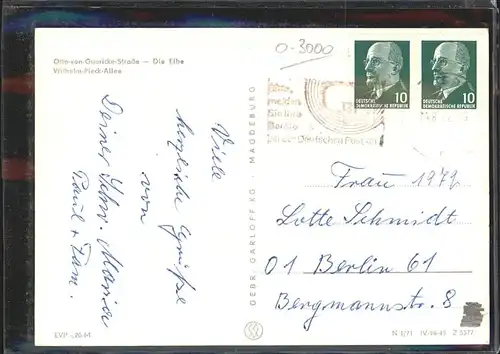 Otto-von-Guericke-Straße — Die Elbe
Wilhelm-Pieck-Allee
0-3000
10
DEUTSCHE
DEMOKRATISCHE REPUBLIK
10
DEUTSCHE
DEMOKRATISCHE REPUBLIK
Viele
herzliche Grüße
von
Deiner Schw. Maria
Paul + Fam.
GEBR. GARLOFF KG · MAGDEBURG
Frau 1972
Lotte Schmidt
01 Berlin 61
Bergmannstr. 8
EVP -,20 M
N 1/71 IV-14-45 Z 5577